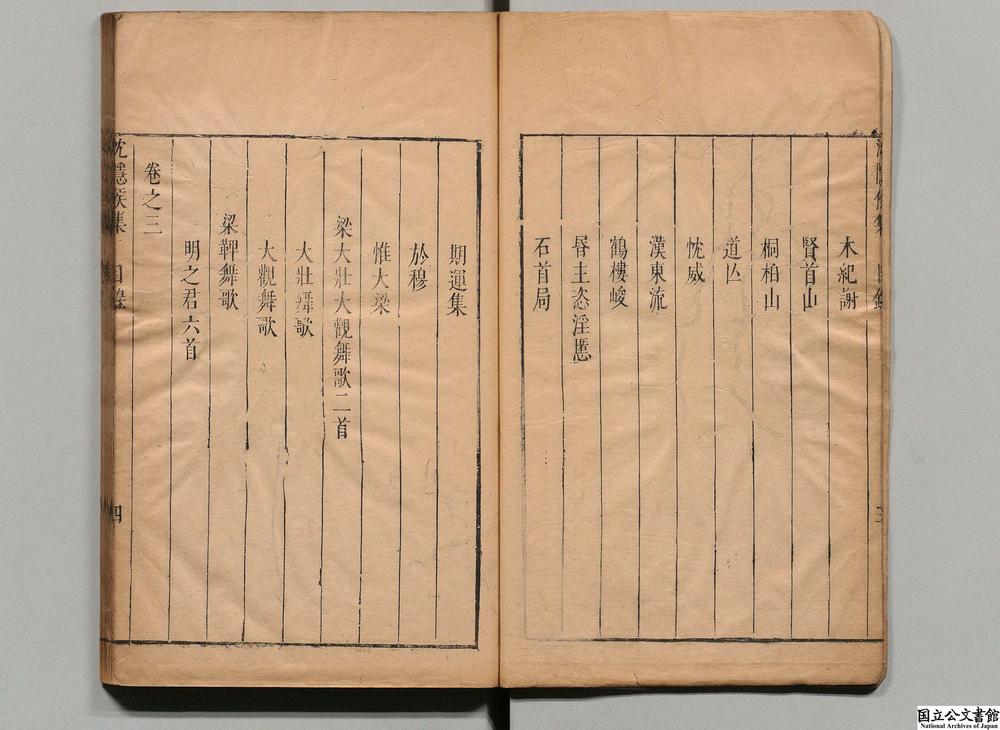 木紀謝
賢首山
桐柏山
道亾
忱威
漢東流
鶴樓峻
昬主恣淫慝
石首局
期運集
於穆
惟大梁
梁大壯大觀舞歌二首
大壯舞歌
大觀舞歌
梁鞞舞歌
明之君六首
卷之三
沈隱侯集 目錄 四
国立公文書館
National Archives of Japan